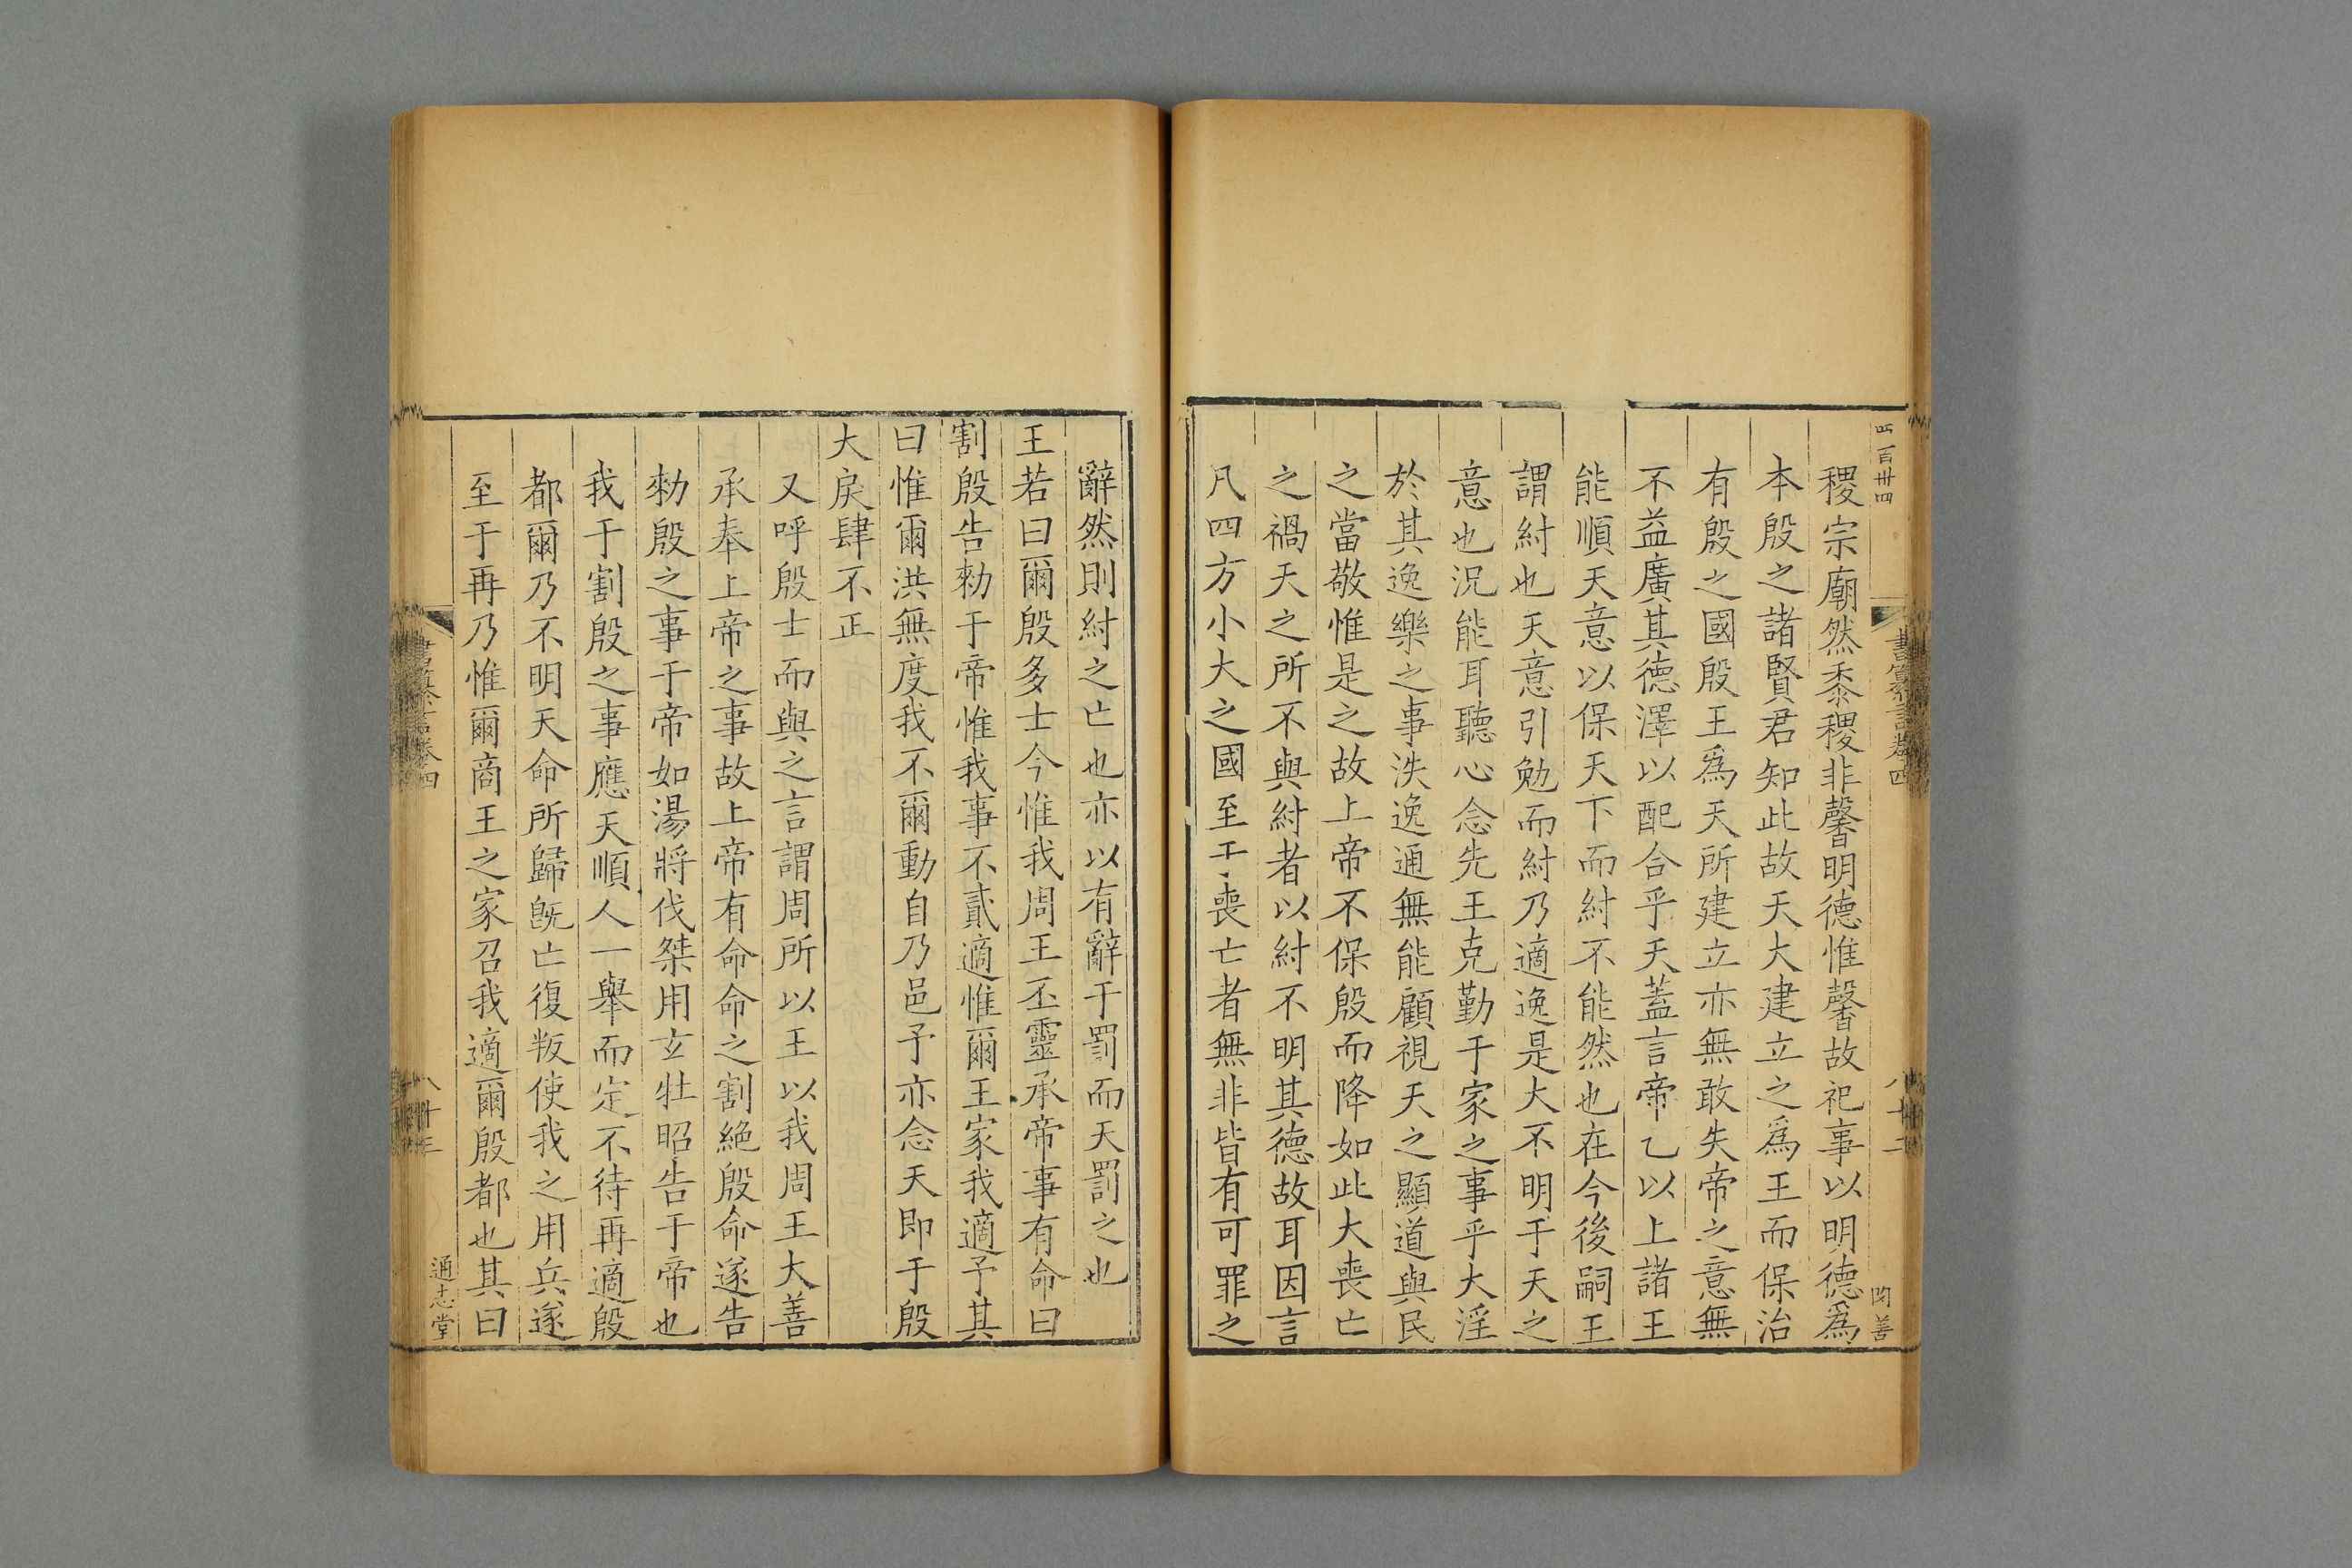 四百卅四
書纂言卷四
閔善
稷宗廟然黍稷非馨明德惟馨故祀事以明德爲
本殷之諸賢君知此故天大建立之爲王而保治
有殷之國殷王爲天所建立亦無敢失帝之意無
不益廣其德澤以配合乎天蓋言帝乙以上諸王
能順天意以保天下而紂不能然也在今後嗣王
謂紂也天意引勉而紂乃適逸是大不明于天之
意也況能耳聽心念先王克勤于家之事乎大淫
於其逸樂之事泆逸通無能顧視天之顯道與民
之當敬惟是之故上帝不保殷而降如此大喪亡
之禍天之所不與紂者以紂不明其德故耳因言
凡四方小大之國至于喪亡者無非皆有可罪之
辭然則紂之亡也亦以有辭于罰而天罰之也
王若曰爾殷多士今惟我周王丕靈承帝事有命曰
割殷告勑于帝惟我事不貳適惟爾王家我適予其
曰惟爾洪無度我不爾動自乃邑予亦念天即于殷
大戾肆不正
又呼殷士而與之言謂周所以王以我周王大善
承奉上帝之事故上帝有命命之割絶殷命遂告
勑殷之事于帝如湯將伐桀用玄牡昭告于帝也
我于割殷之事應天順人一舉而定不待再適殷
都爾乃不明天命所歸旣亡復叛使我之用兵遂
至于再乃惟爾商王之家召我適爾殷都也其曰
書纂言卷四
通志堂